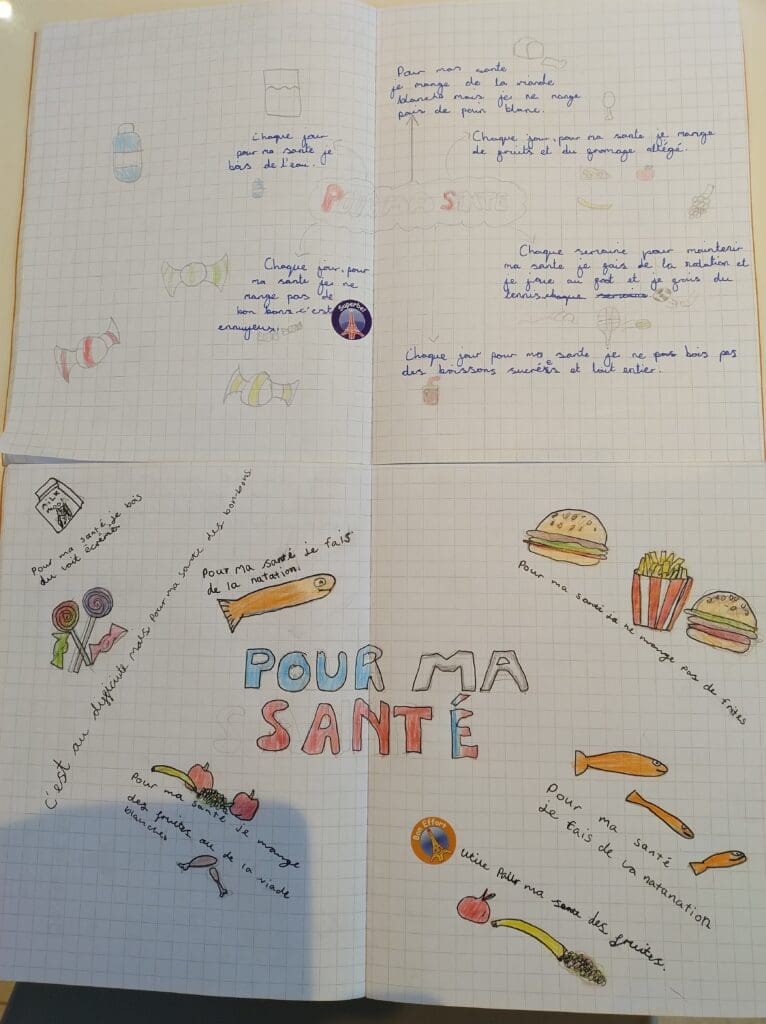 Pour mas sante
je mange de la viande
blanche mais je ne mange
pas de pain blanc.
Chaque jour
pour ma santé je
bois de l'eau.
Chaque jour, pour ma santé je mange
de fruits et du fromage allégé.
POUR MA SANTÉ
Chaque jour, pour
ma santé je ne
mange pas de
bon bons. c'est
ennuyeux.
Superbe!
Chaque semaine pour maintenir
ma santé je fais de la natation et
je joue au foot et je fais du
tennis. chaque semaine
Chaque jour pour ma santé je ne pas bois pas
des boissons sucréés et lait entier.
MILK
Pour ma santé je bois
du lait écrémé.
C'est au difficiuté mais Pour ma sante des bon-bons
Pour Ma santé je fais
de la natation.
Pour ma santé je ne mange pas de frites
POUR MA
SANTÉ
Pour ma santé je mange
des fruites ou de la viade
blanches
Pour ma santé
je fais de la natanation
Bon Effort
utile Pour ma sante des fruites.